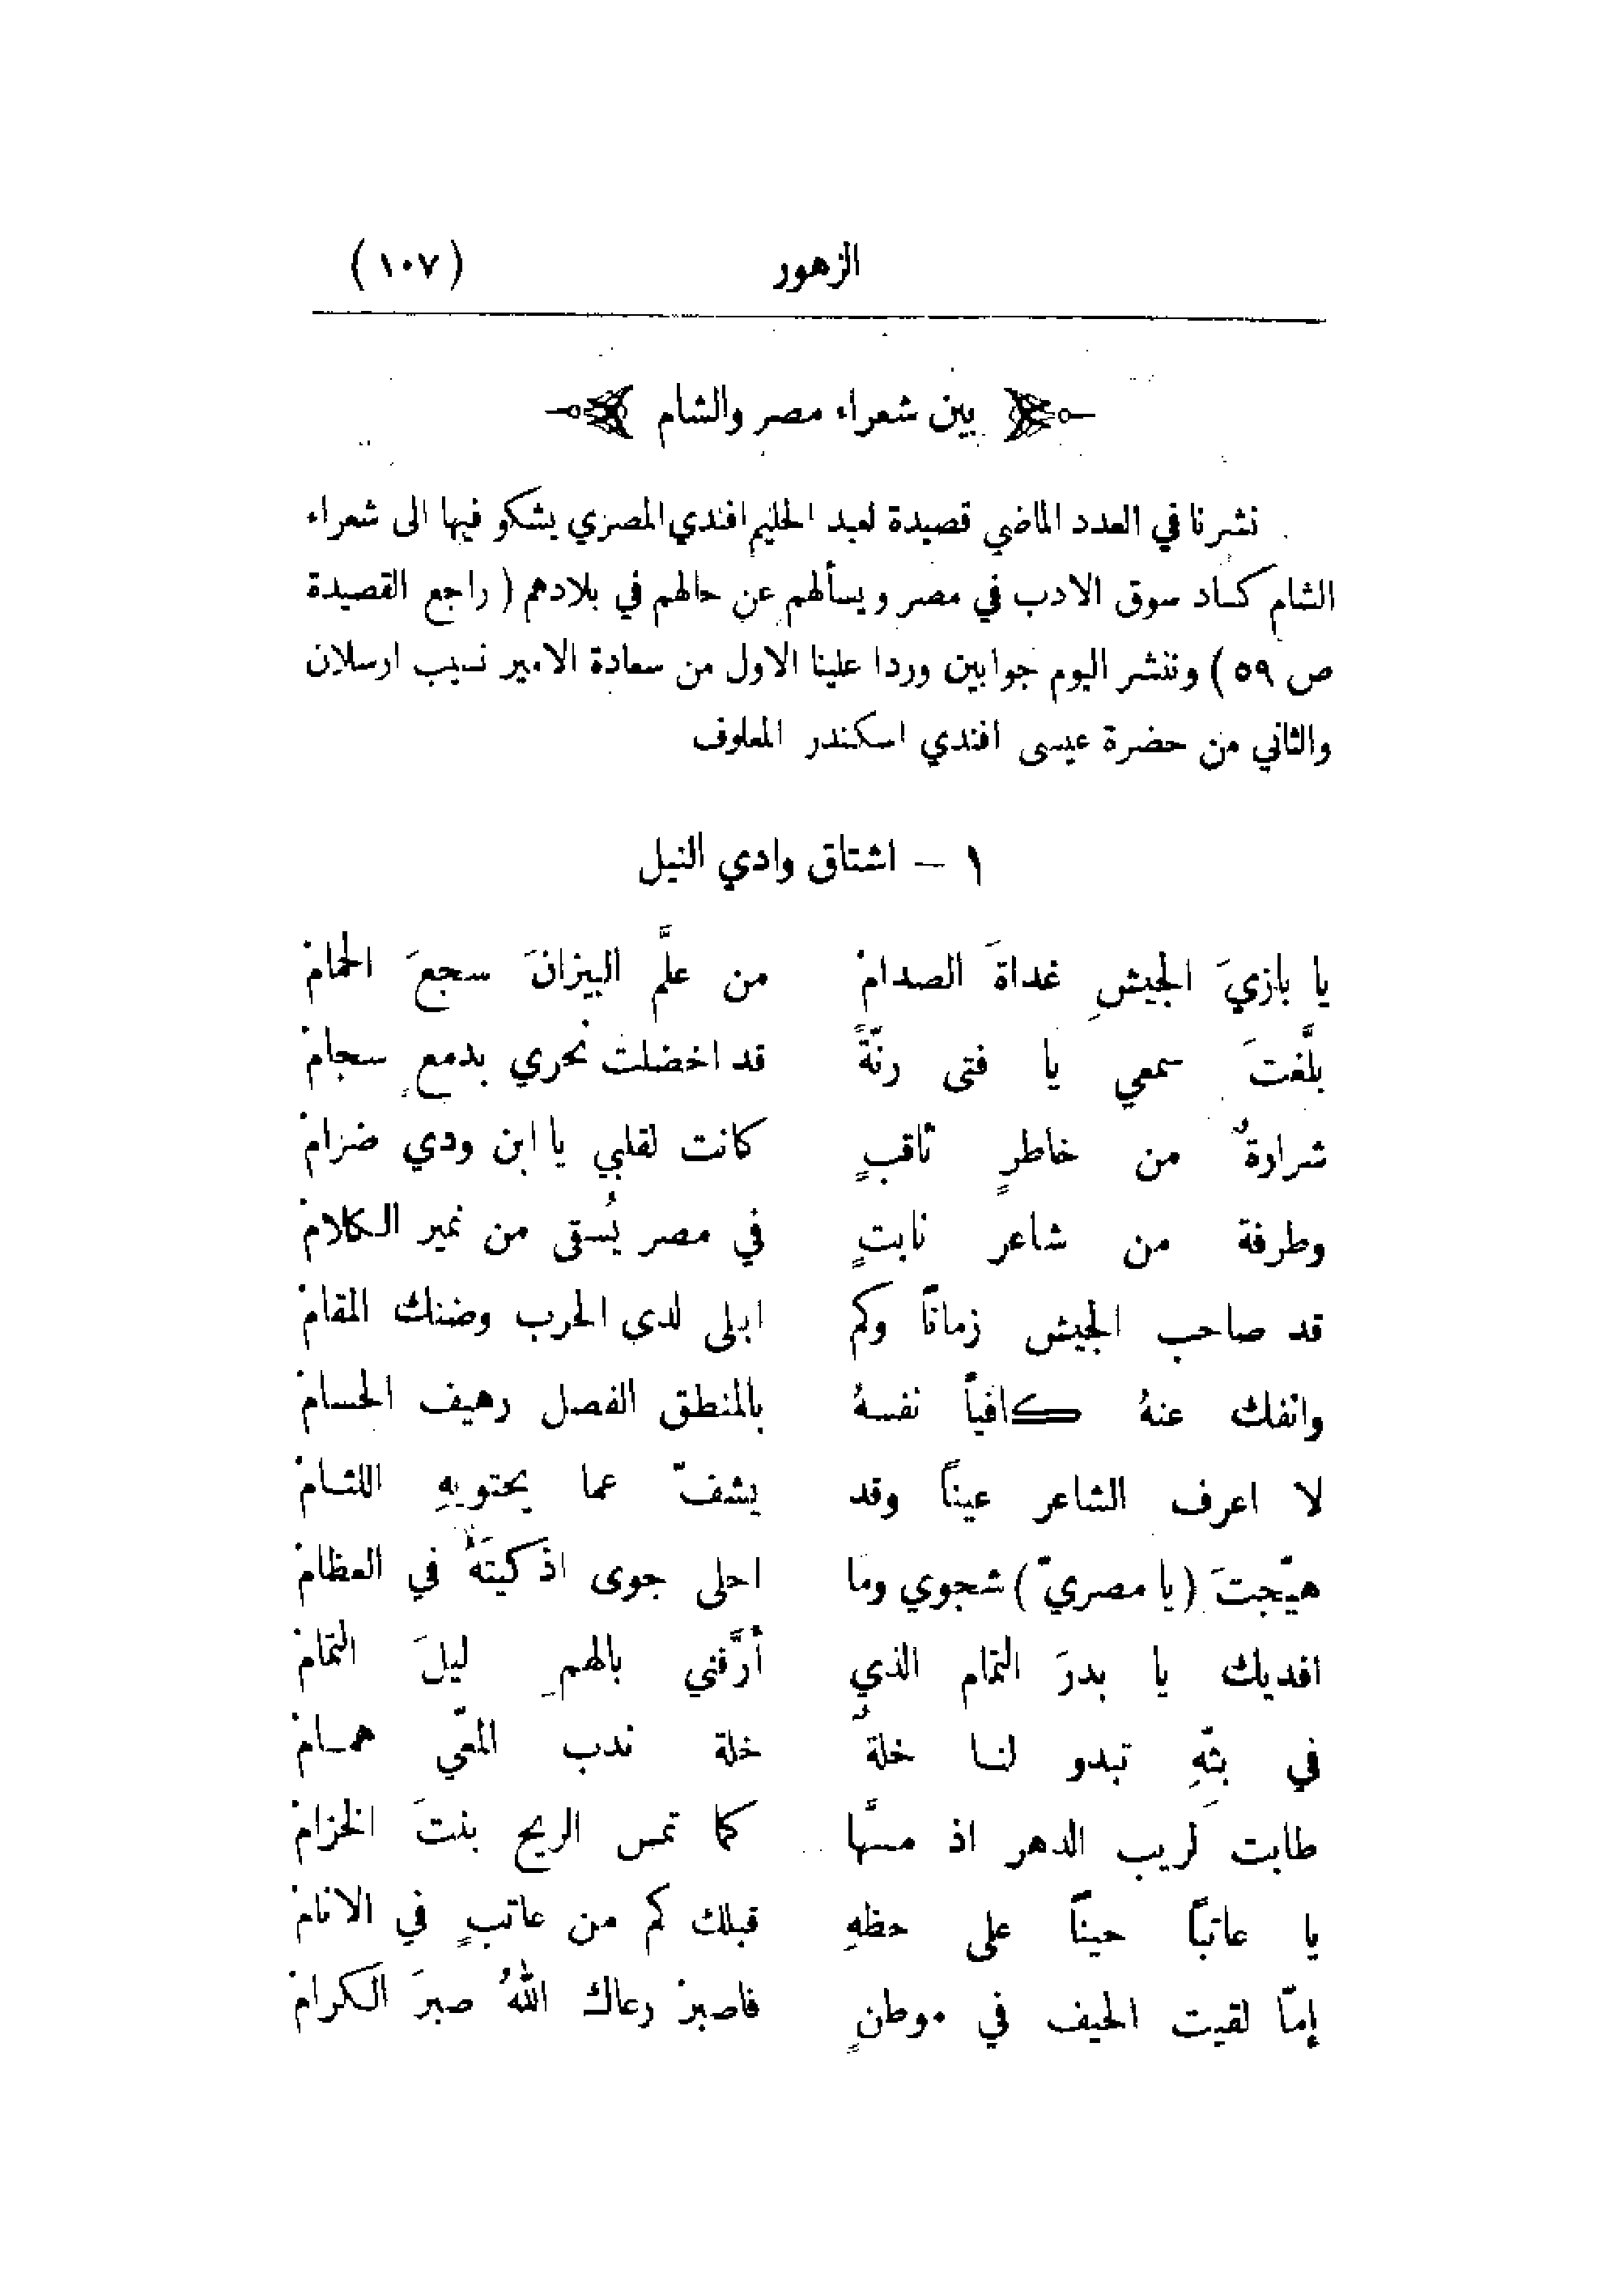 الزهور (١٠٧)
بين شعراء مصر والشام
نشرنا في العدد الماضي قصيدة لعبد الحليم افندي المصري يشكو فيها الى شعراء
الشام كساد سوق الادب في مصر ويسألهم عن حالهم في بلادهم ( راجع القصيدة
ص ٥٩ ) وننشر اليوم جوابين وردا علينا الاول من سعادة الامير نسيب ارسلان
والثاني من حضرة عيسى افندي اسكندر المعلوف
١ – اشتاق وادي النيل
يا بازيَ الجيشِ غداةَ الصدامْ من علَّم البيزانَ سجعَ الحمامْ
بلَّغتَ سمعي يا فتى رنّةً قد اخضلت نحري بدمعٍ سجامْ
شرارةٌ من خاطرٍ ثاقبٍ كانت لقلبي يا ابن ودي ضرامْ
وطرفة من شاعر نابتٍ في مصر يُسقى من نمير الكلامْ
قد صاحب الجيش زماناً وكم ابلى لدى الحرب وضنك المقامْ
وانفك عنهُ كافياً نفسهُ بالمنطق الفصل رهيف الحسامْ
لا اعرف الشاعر عيناً وقد يشفّ عما يحتويهِ اللثامْ
هيّجتَ (يا مصريّ) شجوي وما احلى جوى اذكيتَهُ في العظامْ
افديك يا بدرَ التمام الذي أرَّقني بالهمِ ليلَ التمامْ
في بثّهِ تبدو لنا خلةٌ خلة ندب المعّي همامْ
طابت لَريب الدهر اذ مسَّها كما تمس الريح بنتَ الخزامْ
يا عاتباً حيناً على حظهِ قبلك كم من عاتبٍ في الانامْ
إمّا لقيت الحيف في موطنٍ فاصبرْ رعاك اللهُ صبرَ الكرامْ